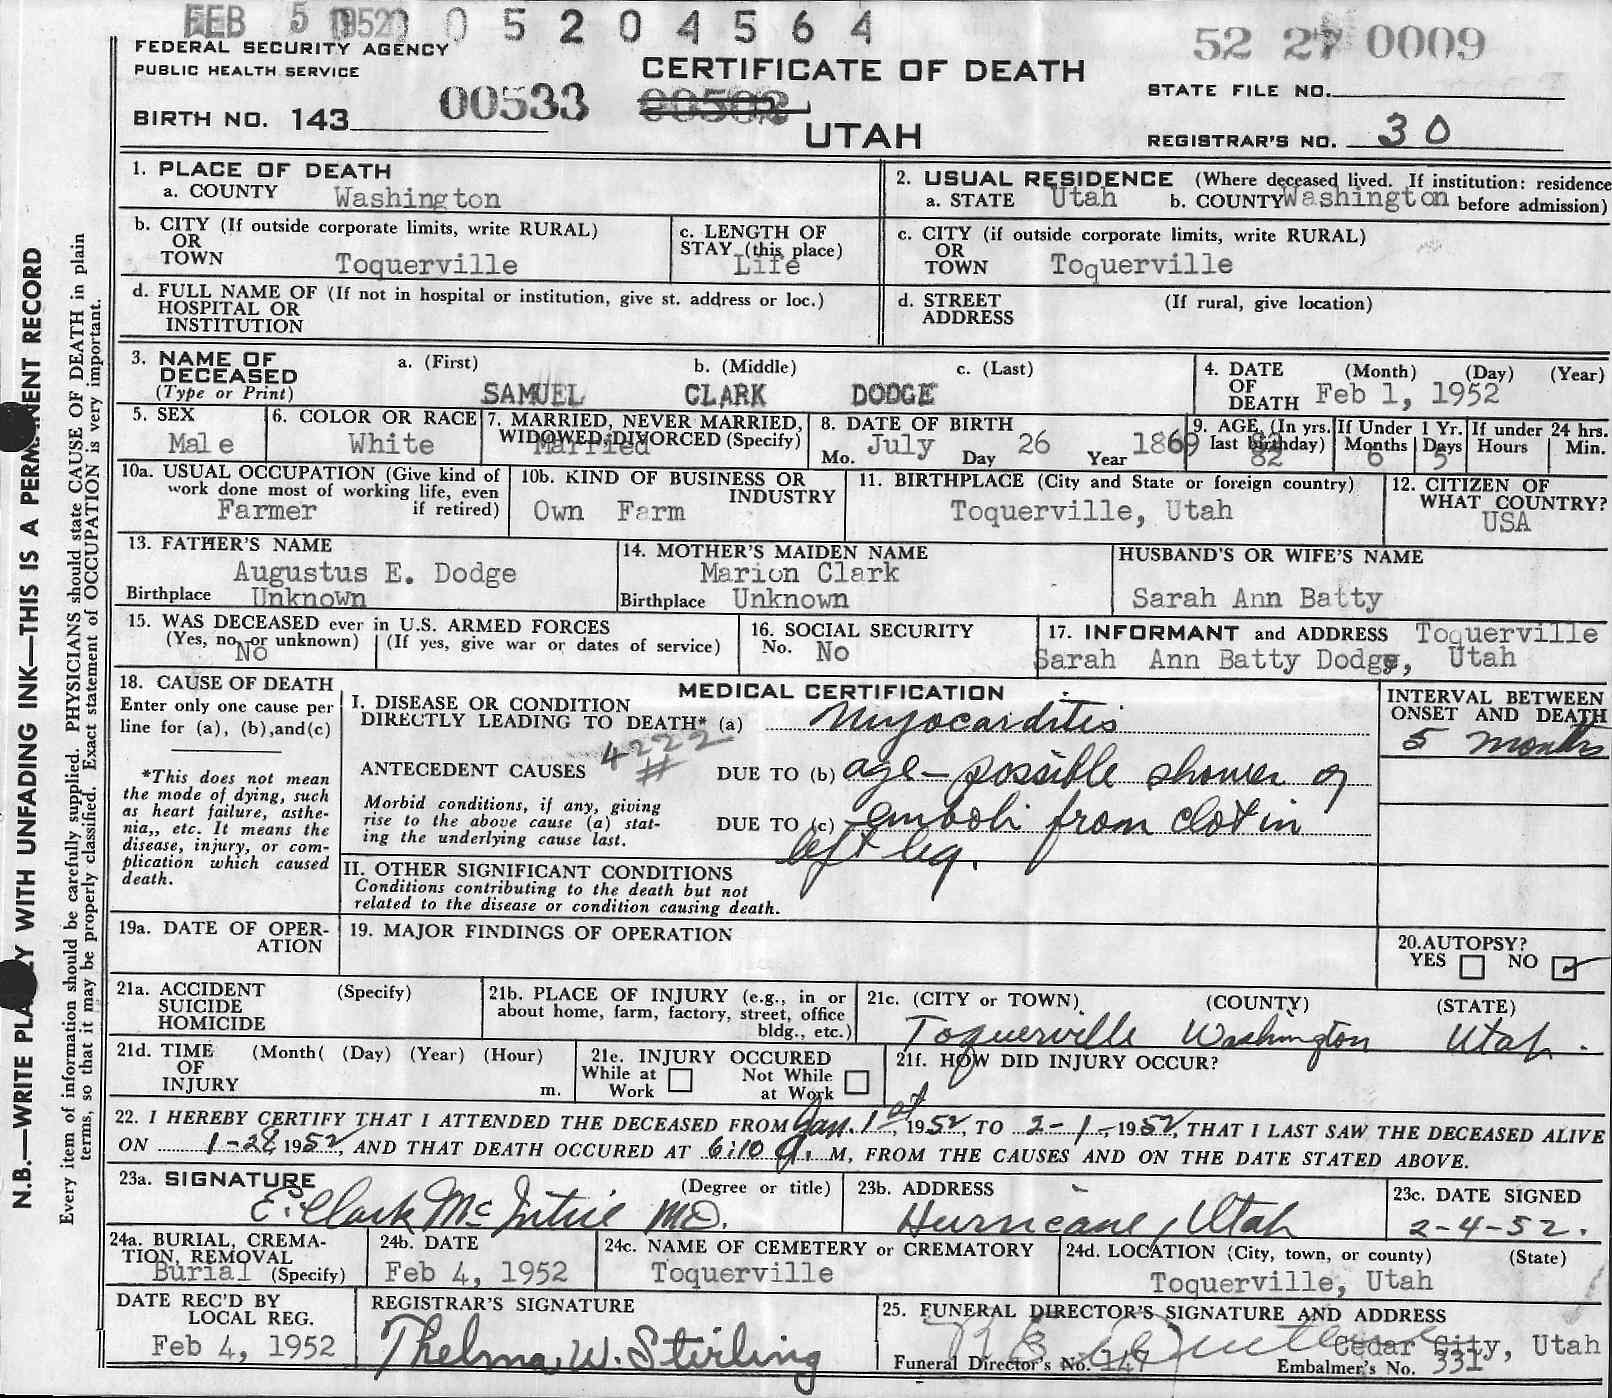 FEB 5 1952 0 0 5 2 0 4 5 6 4
52 27 0009
FEDERAL SECURITY AGENCY
PUBLIC HEALTH SERVICE
CERTIFICATE OF DEATH
STATE FILE NO.
BIRTH NO. 143
00533 00502
UTAH
REGISTRAR'S NO. 30
N.B.—WRITE PLAINLY WITH UNFADING INK—THIS IS A PERMANENT RECORD
Every item of information should be carefully supplied. PHYSICIANS should state CAUSE OF DEATH in plain
terms, so that it may be properly classified. Exact statement of OCCUPATION is very important.
1. PLACE OF DEATH
a. COUNTY Washington
2. USUAL RESIDENCE (Where deceased lived. If institution: residence
a. STATE Utah b. COUNTY Washington before admission)
b. CITY (If outside corporate limits, write RURAL)
OR
TOWN Toquerville
c. LENGTH OF
STAY (this place)
Life
c. CITY (if outside corporate limits, write RURAL)
OR
TOWN Toquerville
d. FULL NAME OF (If not in hospital or institution, give st. address or loc.)
HOSPITAL OR
INSTITUTION
d. STREET (If rural, give location)
ADDRESS
3. NAME OF
DECEASED
(Type or Print)
a. (First) b. (Middle) c. (Last)
SAMUEL CLARK DODGE
4. DATE (Month) (Day) (Year)
OF
DEATH Feb 1, 1952
5. SEX
Male
6. COLOR OR RACE
White
7. MARRIED, NEVER MARRIED,
WIDOWED, DIVORCED (Specify)
Married
8. DATE OF BIRTH
Mo. July Day 26 Year 1869
9. AGE (In yrs.
last birthday)
82
82
If Under 1 Yr.
Months Days
6 5
If under 24 hrs.
Hours Min.
10a. USUAL OCCUPATION (Give kind of
work done most of working life, even
if retired)
Farmer
10b. KIND OF BUSINESS OR
INDUSTRY
Own Farm
11. BIRTHPLACE (City and State or foreign country)
Toquerville, Utah
12. CITIZEN OF
WHAT COUNTRY?
USA
13. FATHER'S NAME
Augustus E. Dodge
Birthplace Unknown
14. MOTHER'S MAIDEN NAME
Marion Clark
Birthplace Unknown
HUSBAND'S OR WIFE'S NAME
Sarah Ann Batty
15. WAS DECEASED ever in U.S. ARMED FORCES
(Yes, no, or unknown) (If yes, give war or dates of service)
No
16. SOCIAL SECURITY
No. No
17. INFORMANT and ADDRESS Toquerville
Sarah Ann Batty Dodge, Utah
18. CAUSE OF DEATH
Enter only one cause per
line for (a), (b), and (c)
*This does not mean
the mode of dying, such
as heart failure, asthe-
nia,, etc. It means the
disease, injury, or com-
plication which caused
death.
MEDICAL CERTIFICATION
I. DISEASE OR CONDITION
DIRECTLY LEADING TO DEATH* (a) Myocarditis
4222
#
ANTECEDENT CAUSES DUE TO (b) age - possible shower of
Morbid conditions, if any, giving
rise to the above cause (a) stat-
ing the underlying cause last.
DUE TO (c) emboli from clot in
left leg.
INTERVAL BETWEEN
ONSET AND DEATH
5 months
II. OTHER SIGNIFICANT CONDITIONS
Conditions contributing to the death but not
related to the disease or condition causing death.
19a. DATE OF OPER-
ATION
19. MAJOR FINDINGS OF OPERATION
20. AUTOPSY?
YES NO
21a. ACCIDENT (Specify)
SUICIDE
HOMICIDE
21b. PLACE OF INJURY (e.g., in or
about home, farm, factory, street, office
bldg., etc.)
21c. (CITY or TOWN) (COUNTY) (STATE)
Toquerville Washington Utah.
21d. TIME (Month( (Day) (Year) (Hour)
OF
INJURY m.
21e. INJURY OCCURED
While at Not While
Work at Work
21f. HOW DID INJURY OCCUR?
22. I HEREBY CERTIFY THAT I ATTENDED THE DECEASED FROM Jan. 1st, 1952, TO 2-1-, 1952, THAT I LAST SAW THE DECEASED ALIVE
ON 1-28 1952, AND THAT DEATH OCCURED AT 6:10 a. M, FROM THE CAUSES AND ON THE DATE STATED ABOVE.
23a. SIGNATURE (Degree or title)
E. Clark McIntire MD.
23b. ADDRESS
Hurricane, Utah
23c. DATE SIGNED
2-4-52.
24a. BURIAL, CREMA-
TION, REMOVAL
Burial (Specify)
24b. DATE
Feb 4, 1952
24c. NAME OF CEMETERY or CREMATORY
Toquerville
24d. LOCATION (City, town, or county) (State)
Toquerville, Utah
DATE REC'D BY
LOCAL REG.
Feb 4, 1952
REGISTRAR'S SIGNATURE
Thelma W. Stirling
25. FUNERAL DIRECTOR'S SIGNATURE AND ADDRESS
Cedar City, Utah
Funeral Director's No. 147 Embalmer's No. 331